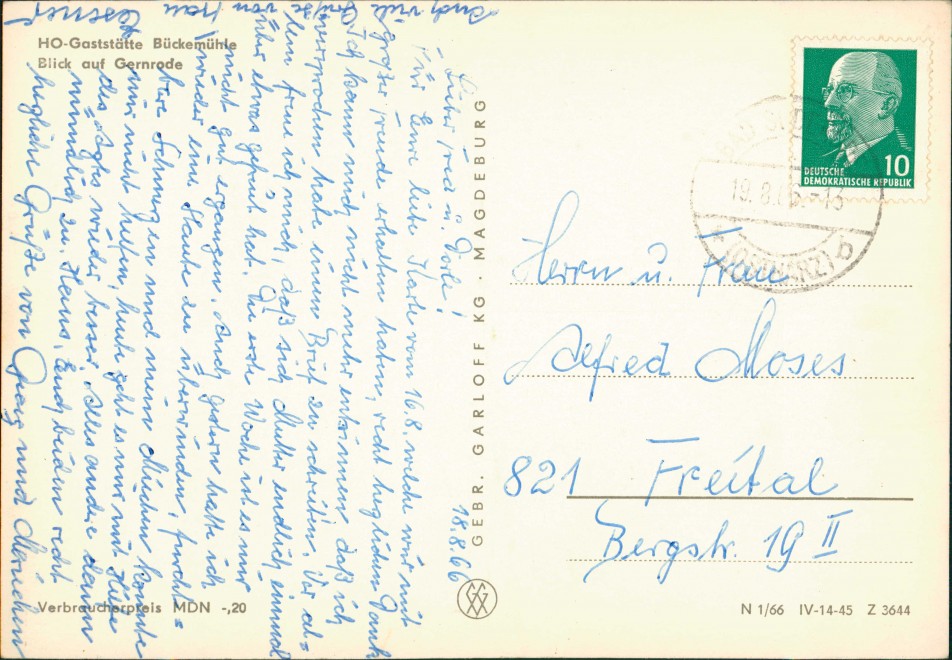 HO-Gaststätte Bückemühle
Blick auf Gernrode
18.8.66
Liebe u. Dorle!
Für Eure liebe Karte vom 16.8. welche wir mit
großer Freude erhalten haben, recht herzlichen Dank
Ich kann mich nicht mehr entsinnen daß ich
versprochen habe einen Brief zu schreiben. Vor al=
lem freue ich mich, daß sich Mutter endlich einmal
über etwas gefreut hat. Die erste Woche ist es mir
nicht gut ergangen. Auch gestern hatte ich
wieder eine zu überwinden, furcht=
bare Schmerzen und mein konnte
mir nicht helfen, heute geht es mir mit Hilfe
des Arztes wieder besser. Alles andere dann
mündlich zu Haus, Euch beiden recht
herzliche Grüße von Georg und
Auch viele
Grüße von Frau
GEBR. GARLOFF KG · MAGDEBURG
Verbraucherpreis MDN -,20
DEUTSCHE
DEMOKRATISCHE REPUBLIK
10
19.8.66-13
(OSTHARZ)
b
Herrn u. Frau
Alfred Moses
821 Freital
Bergstr. 19 II
N 1/66 IV-14-45 Z 3644